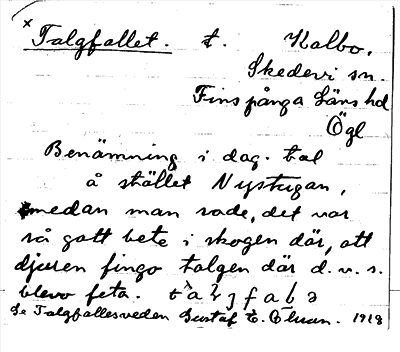 ˣTalgfallet. t. Kalbo,
Skedevi sn.
Finspånga Läns hd
Ögl
Benämning i dag. tal
å stället Nystugan,
medan man sade, det var
så gott bete i skogen där, att
djuren fingo talgen där d. v. s.
blevo feta.
Se Talgfallesveden Gustaf E. 1918